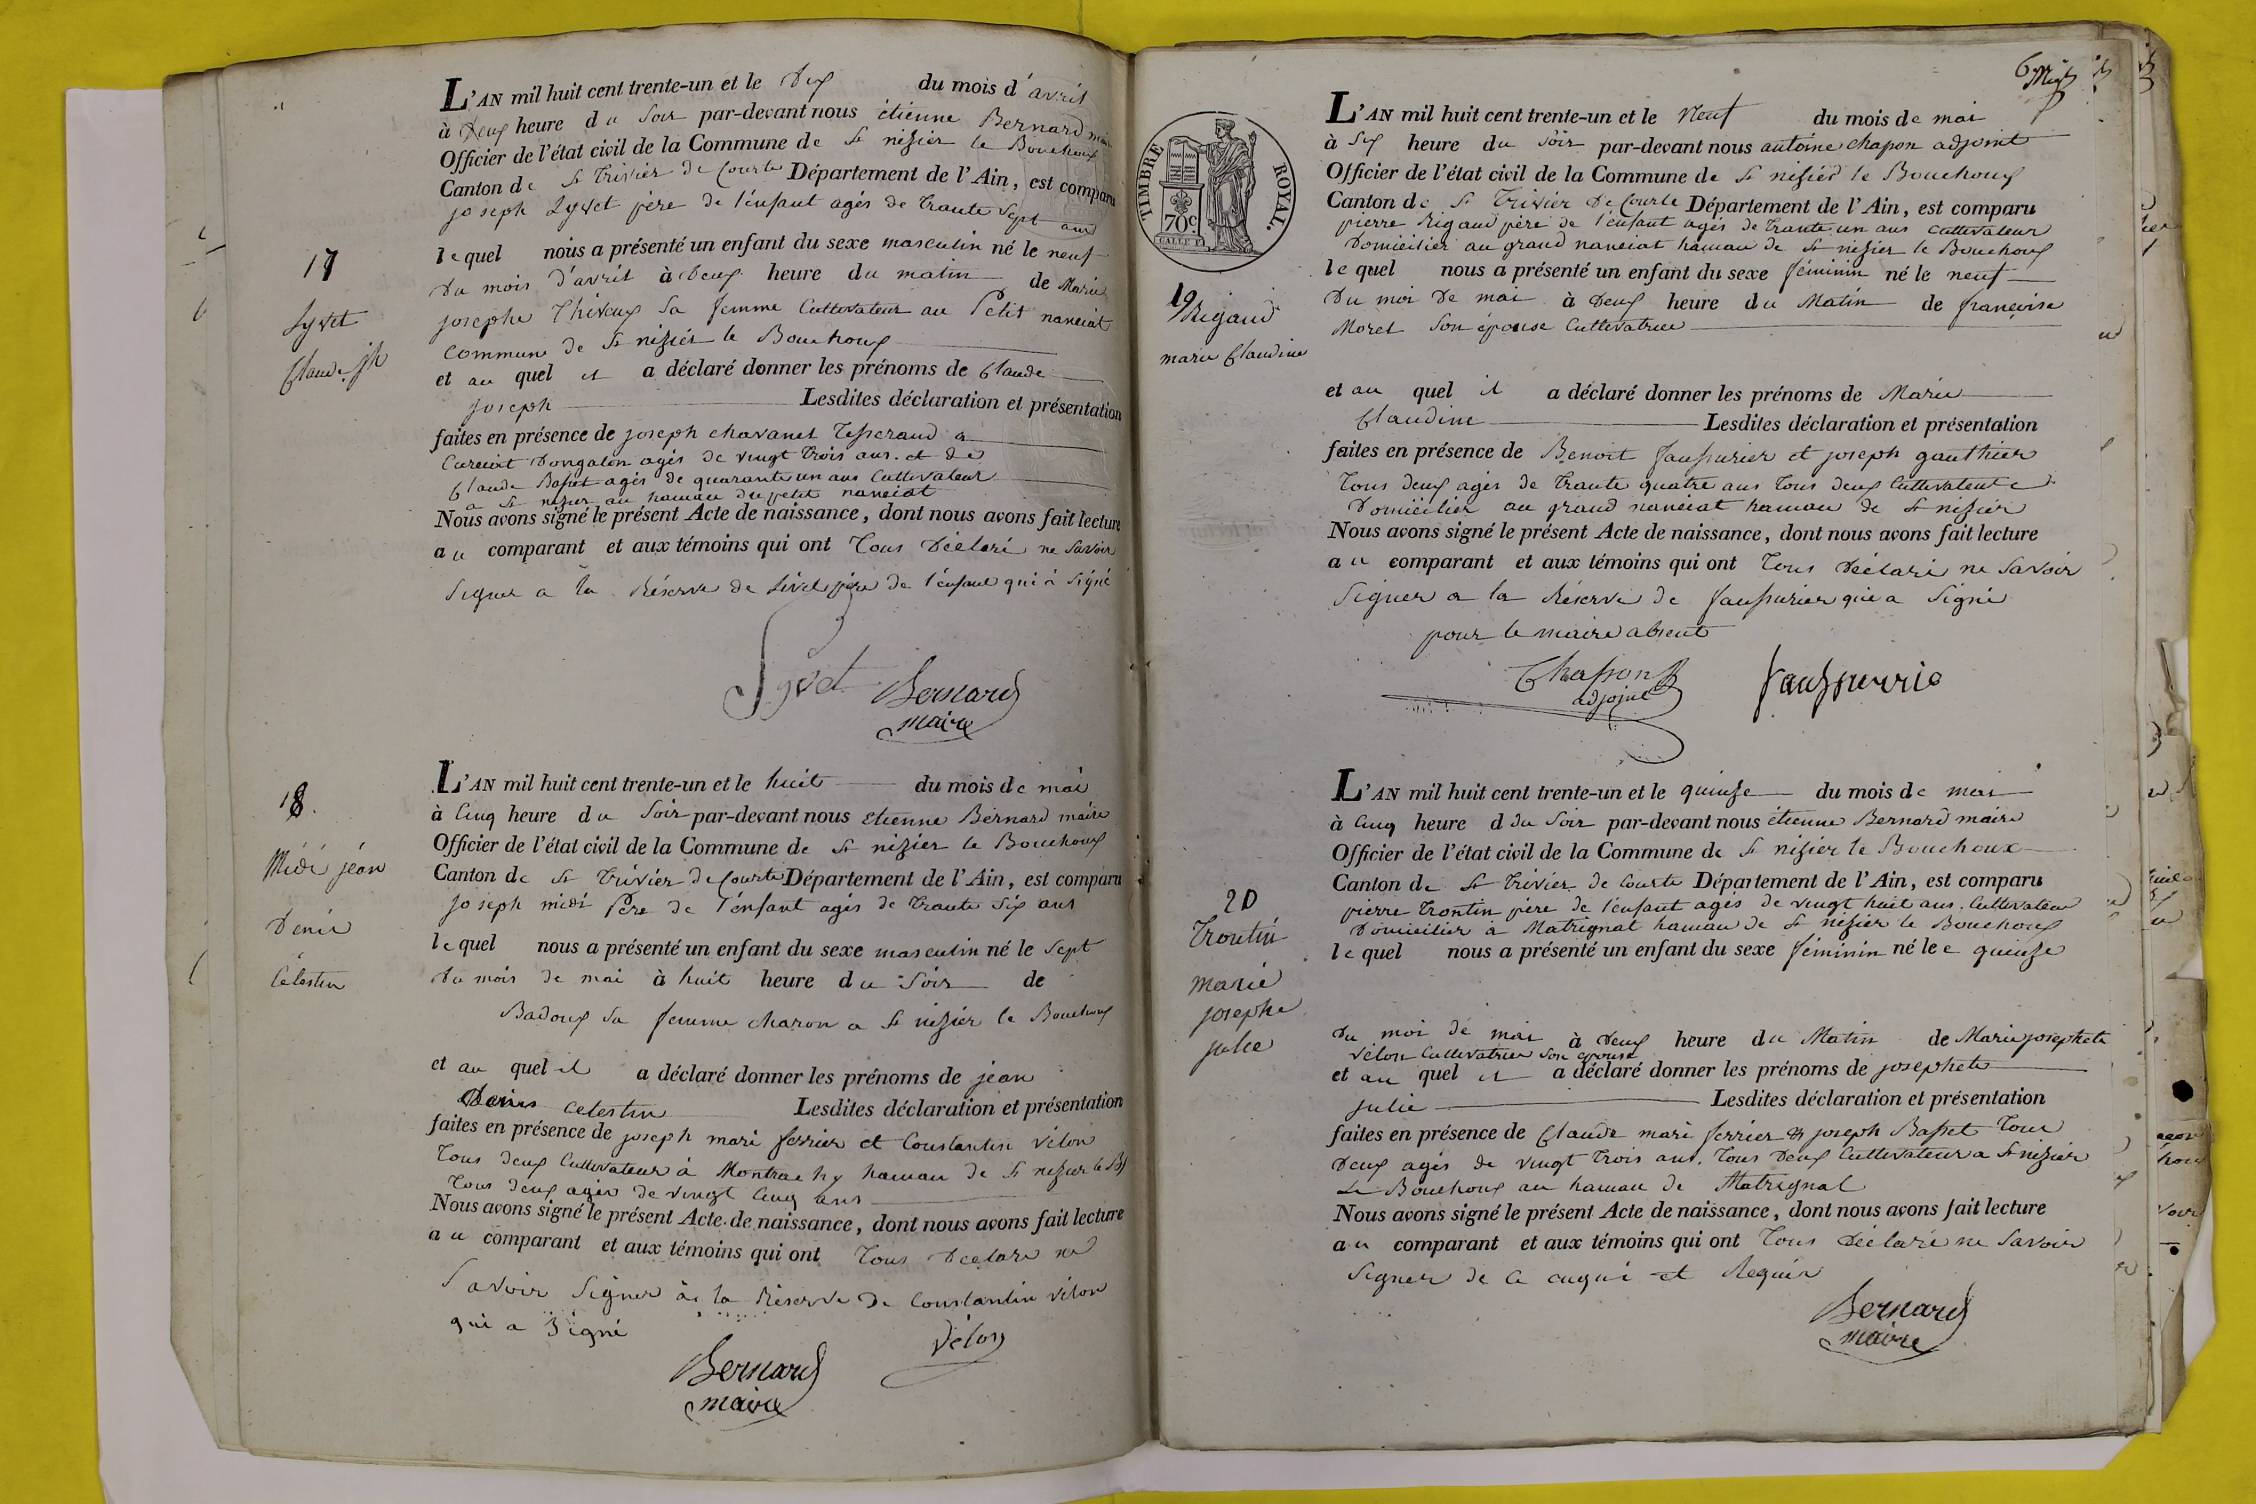 L'AN mil huit cent trente-un et le Dix du mois d'avril
à Deux heure du Soir par-devant nous étienne Bernard maire
Officier de l'état civil de la Commune de St nisier le Bouchoux
Canton de St Trivier de Courte Département de l'Ain, est comparu
joseph Lyvet père de l'enfant agés de Trante Sept ans
17
lequel nous a présenté un enfant du sexe masculin né le neuf
Du mois d'avril à Deux heure du matin de Marie
Lyvet
josephe Thivoux Sa femme Cultivateur au Petit nanciat
Claude jh
commune de St nisier le Bouchoux
et au quel il a déclaré donner les prénoms de Claude
joseph Lesdites déclaration et présentation
faites en présence de joseph chavanel Tisserand a
Curciat Dongalon agés de vingt Trois ans. et de
Claude Basset agés de quarante un ans Cultivateur
a St nisier au hameau du petit nanciat
Nous avons signé le présent Acte de naissance, dont nous avons fait lecture
au comparant et aux témoins qui ont Tous Déclaré ne Savoir
Signer a la Réserve de Livet père de l'enfant qui a Signé
Lyvet Bernard
maire
L'AN mil huit cent trente-un et le huit du mois de mai
18.
à Cinq heure du Soir par-devant nous Etienne Bernard maire
Officier de l'état civil de la Commune de St nisier le Bouchoux
Midi jéan
Canton de St Trivier de Courte Département de l'Ain, est comparu
joseph midi Père de l'énfant agés de Trante Six ans
Denis
lequel nous a présenté un enfant du sexe masculin né le Sept
Célestin
Du mois de mai à huit heure du Soir de
Badoux Sa femme charon a St nisier le Bouchoux
et au quel il a déclaré donner les prénoms de jean
Denis celestin Lesdites déclaration et présentation
faites en présence de joseph mari ferrier et Constantin vélon
Tous deux Cultivateur à Montrachy hamau de St nisier le Bx
Tous deux agés de vingt Cinq ans
Nous avons signé le présent Acte de naissance, dont nous avons fait lecture
au comparant et aux témoins qui ont Tous Declare ne
Savoir Signer à la Réserve de Constantin vélon
qui a Signé
Vélon
Bernard
maire
6
TIMBRE ROYAL.
70c.
L'AN mil huit cent trente-un et le Neuf du mois de mai
à Six heure du Soir par-devant nous antoine chapon adjoint
Officier de l'état civil de la Commune de St nisier le Bouchoux
Canton de St Trivier De Courte Département de l'Ain, est comparu
pierre Rigaud père de l'enfant agés de Trante un ans Cultivateur
Domicilier au grand nanciat hamau de St nisier le Bouchoux
lequel nous a présenté un enfant du sexe féminin né le neuf
19
Du moi De mai à Deux heure du Matin de françoise
Rigaud
Morel Son épouse Cultivatrice
marie Claudine
et au quel il a déclaré donner les prénoms de Marie
Claudine Lesdites déclaration et présentation
faites en présence de Benoit et joseph gauthier
Tous deux agés de Trante quatre ans Tous deux Cultivateur
Domicilier au grand nanciat hamau de St nisier
Nous avons signé le présent Acte de naissance, dont nous avons fait lecture
au comparant et aux témoins qui ont Tous Déclaré ne Savoir
Signer a la Réserve de qui a Signé
pour le maire absent
Chapon
adjoint
L'AN mil huit cent trente-un et le quinze du mois de mai
à Cinq heure d du Soir par-devant nous étienne Bernard maire
Officier de l'état civil de la Commune de St nisier le Bouchoux
Canton de St Trivier de Courte Département de l'Ain, est comparu
20
pierre Trontin père de l'enfant agés de vingt huit ans. Cultivateur
Trontin
Domicilier à Matrignat hamau de St nisier le Bouchoux
lequel nous a présenté un enfant du sexe féminin né le e quinze
marié
josephe
julie
Du moi de mai à Deux heure du Matin de Marie josephete
vélon Cultivatrice Son épouse
et au quel il a déclaré donner les prénoms de josephete
julie Lesdites déclaration et présentation
faites en présence de Claude mari ferrier & joseph Basset Tous
Deux agés de vingt Trois ans. Tous Deux Cultivateur a St nisier
Le Bouchoux au hamau de Matrignal
Nous avons signé le présent Acte de naissance, dont nous avons fait lecture
au comparant et aux témoins qui ont Tous Déclaré ne Savoir
Signer de ce enquis et Requis
Bernard
maire